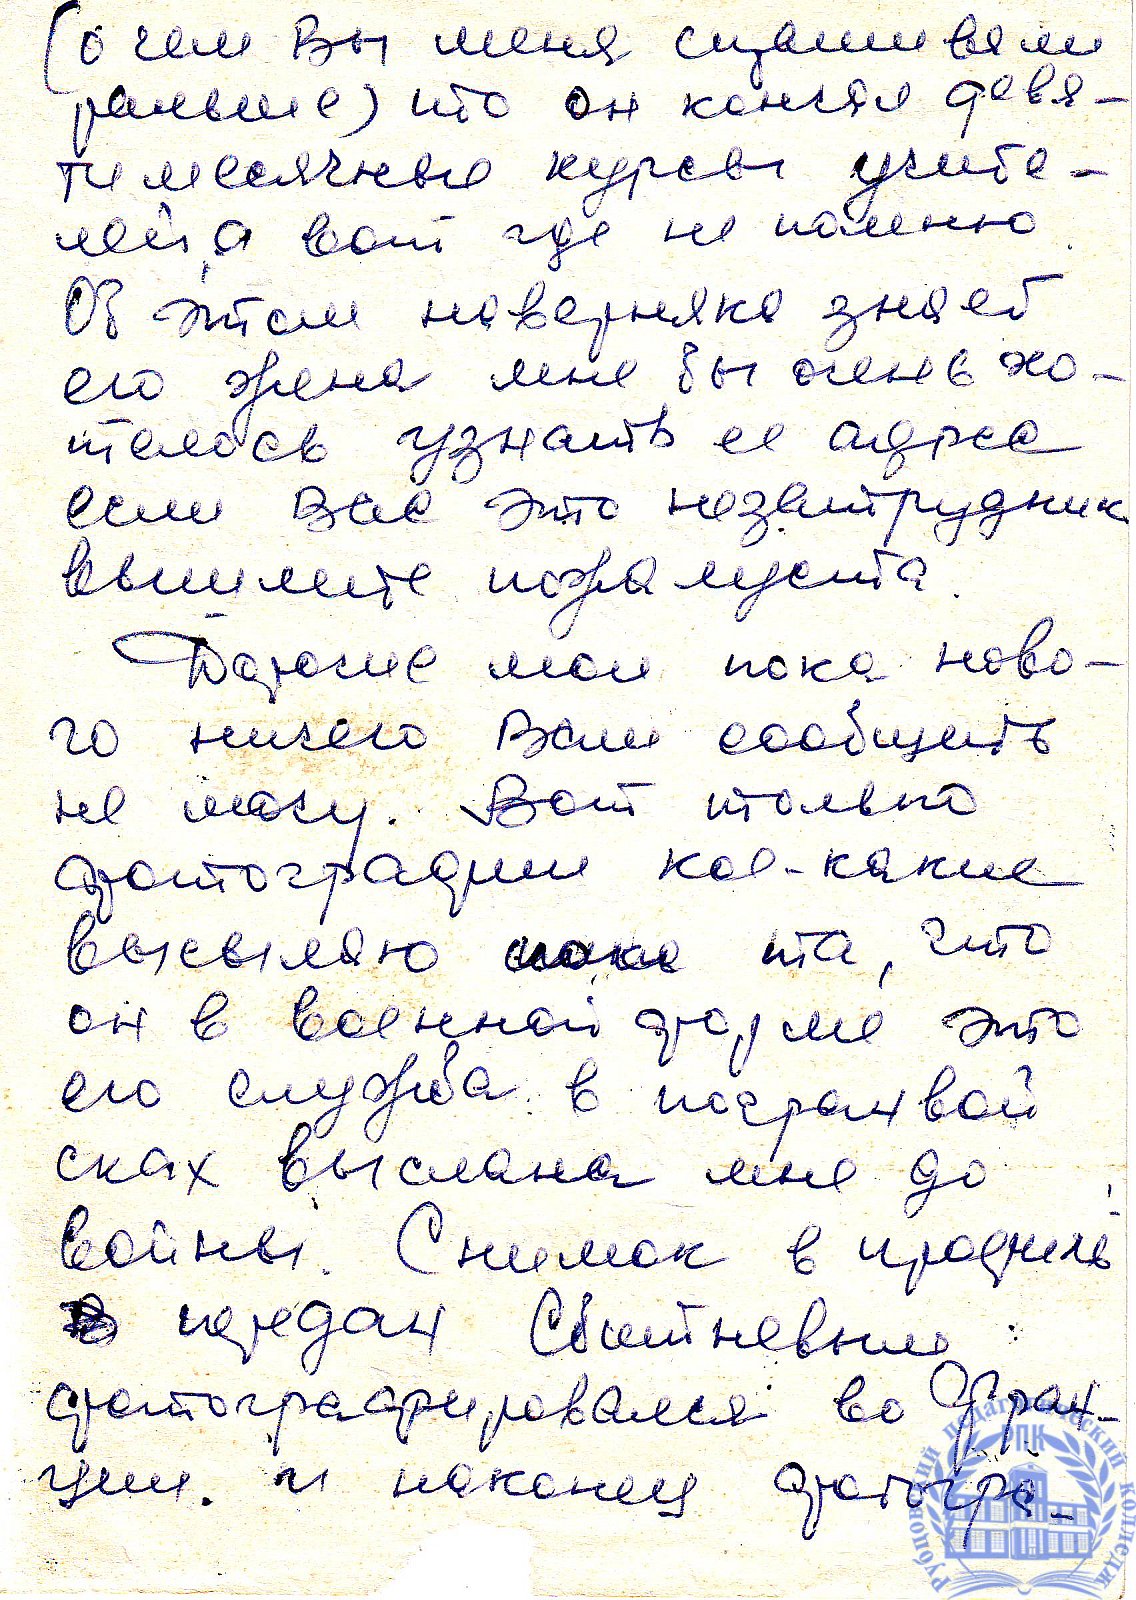 (о чем Вы меня спрашивали
раньше) что он кончал девя-
тимесячные курсы учите-
лей, а вот где не помню.
Об этом наверняка знает
его жена мне бы очень хо-
телось узнать ее адрес
если Вас это незатруднит
вышлите пожалуста.
Дорогие мои пока ново-
го ничего Вам сообщить
не могу. Вот только
фотографии кое-какие
высылаю та, что
он в военной форме это
его служба в погранвой
сках выслана мне до
войны. Снимок в профиль
передан Сбитневым
фотографировался во Фран-
ции. и наконец фотогра-
Рубцовский педагогический колледж
РПК